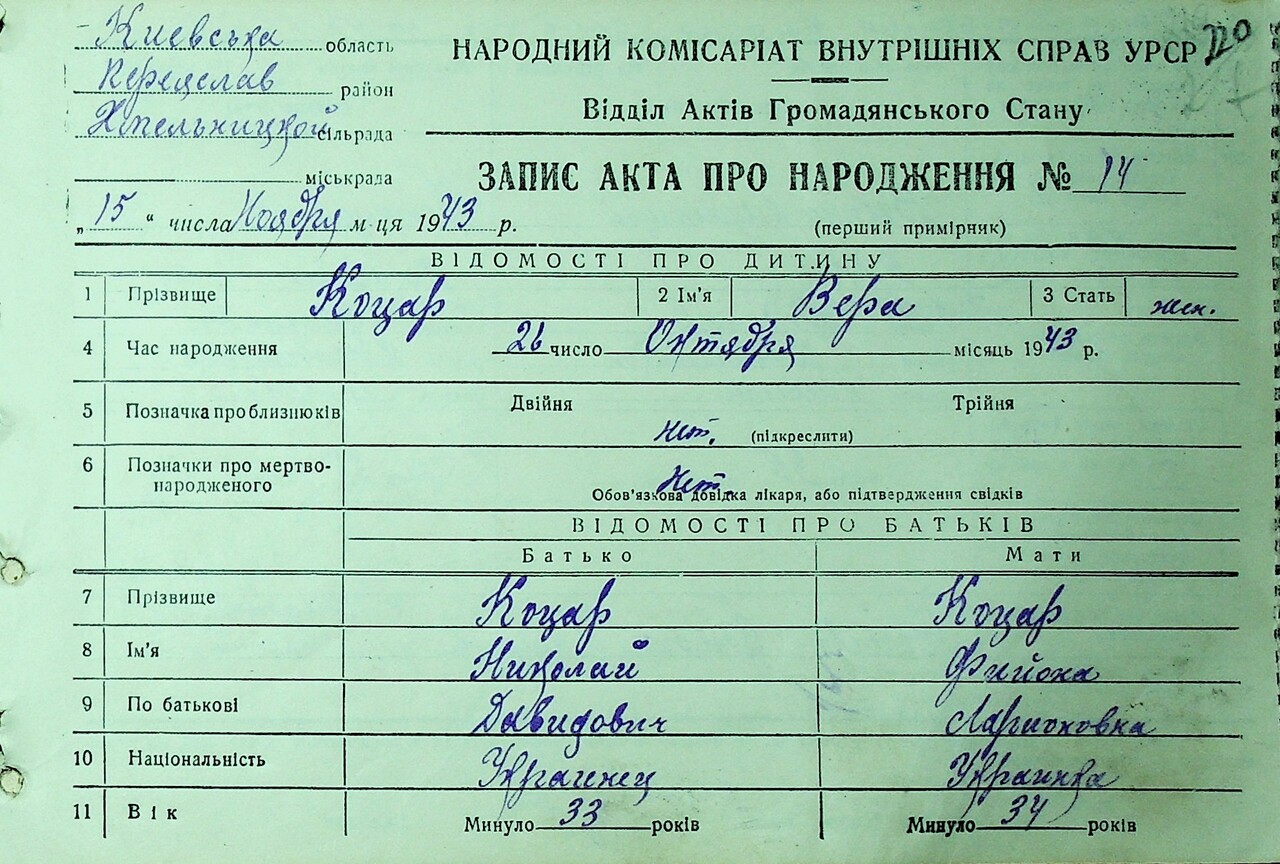 Киевська область
Переяслав район
Хмельницкой сільрада
міськрада
„15“ числа Ноября м-ця 1943 р.
НАРОДНИЙ КОМІСАРІАТ ВНУТРІШНІХ СПРАВ УРСР
220
27
Відділ Актів Громадянського Стану
ЗАПИС АКТА ПРО НАРОДЖЕННЯ № 14
(перший примірник)
ВІДОМОСТІ ПРО ДИТИНУ
1 Прізвище Коцар 2 Ім'я Вера 3 Стать жен.
4 Час народження 26 число Октября місяць 1943 р.
5 Позначка про близнюків Двійня Трійня
нет. (підкреслити)
6 Позначки про мертво-
народженого Нет.
Обов'язкова довідка лікаря, або підтвердження свідків
ВІДОМОСТІ ПРО БАТЬКІВ
Батько Мати
7 Прізвище Коцар Коцар
8 Ім'я Николай
9 По батькові Давидович Ларионовна
10 Національність Украинец Украинка
11 Вік Минуло 33 років Минуло 34 років